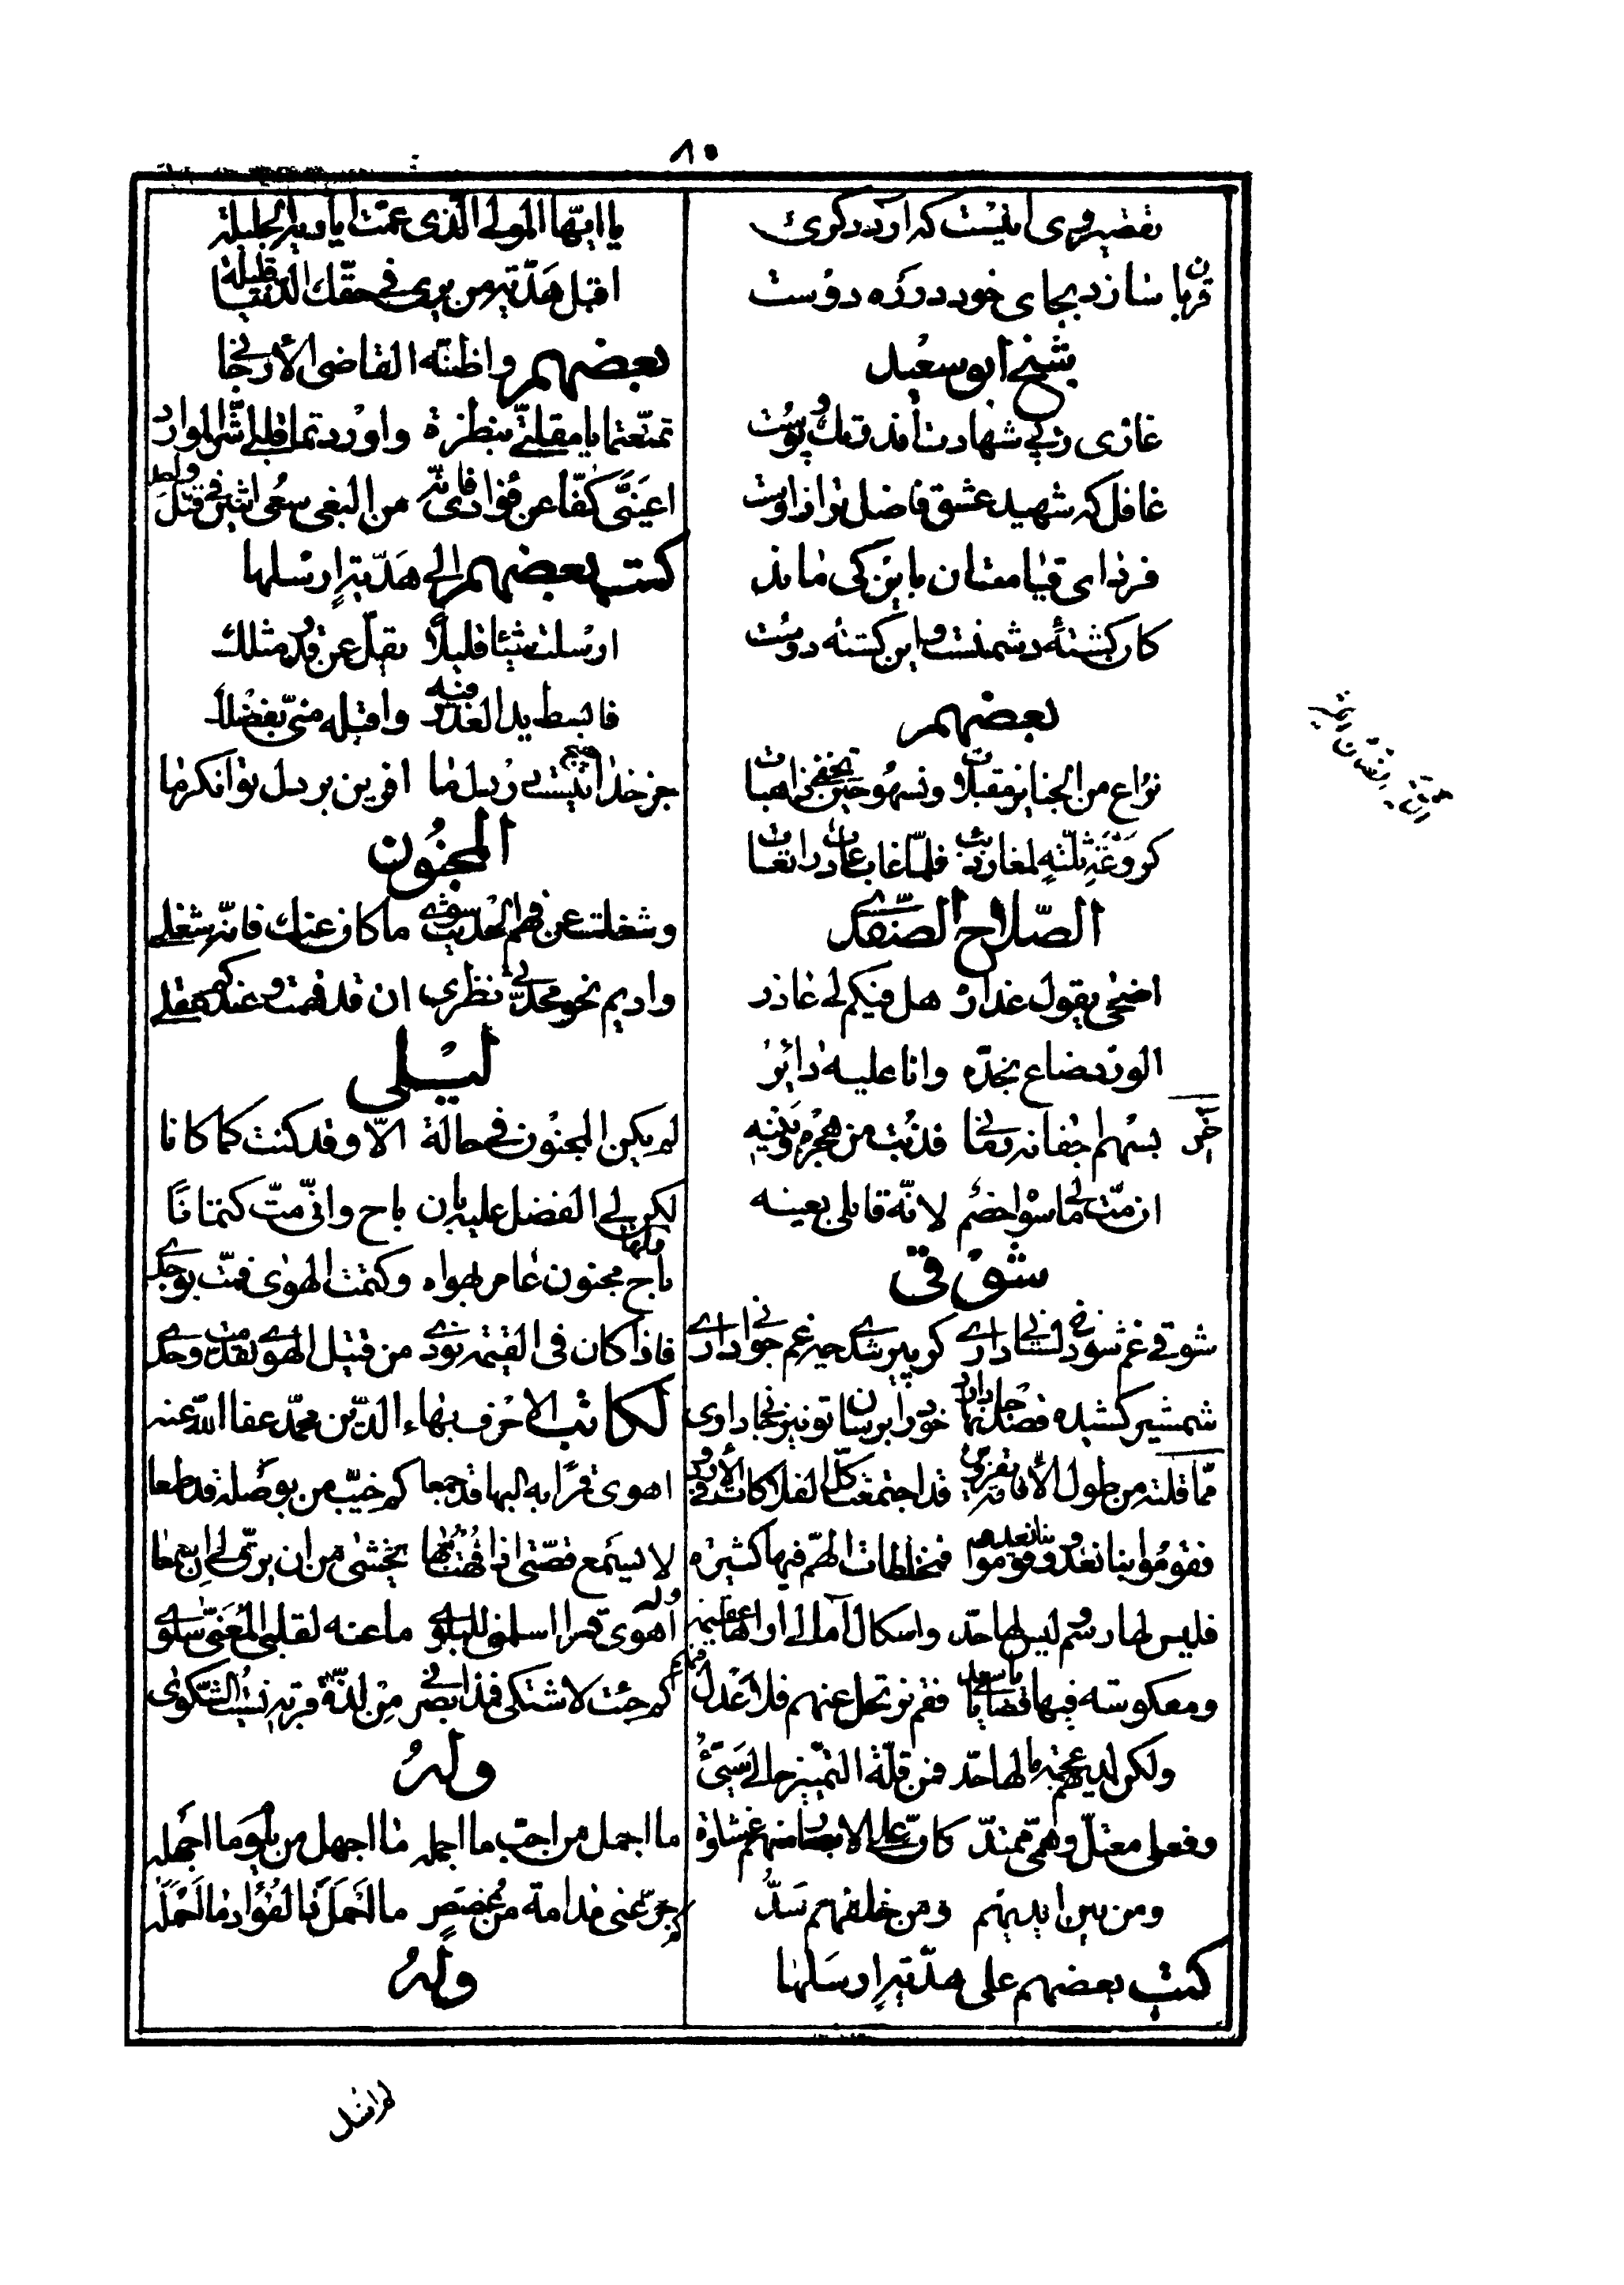 ٨٠
تقصیر وی نیست که آرد دگری
قربان سازد بجای خود در ره دوست
شیخ ابو سعید
غازی ز پی شهادت اندر تک و پوست
غافل که شهید عشق فاضل تر از اوست
فردای قیامت آن باین کی ماند
کان کشتهٔ دشمنست و این کشته دوست
بعضهم
نراع من الجنایز مقبلات ونسهو حین تخفی ذاهبات
کروعة ثلة لمغار ذئب فلما غاب عادت راتعات
الصلاح الصفدی
اضحی یقول عذاره هل فیکم لی عاذر
الورد ضاع بخده وانا علیه دائر
آخر بسهم اجفانه رمانی فذبت من هجره وبینه
ان مت مالی سواه خصم لانه قاتلی بعینه
شوقی
شوقی غم شوخ دلستانی داری گر پیر شدی چه غم جوانی داری
شمشیر کشیده قصد جانها دارد خود را برسان تو نیز جانی داری
مما قلته من طول الاقامة بقزوین قد اجتمعت کل الفلاکات فی الارض
فقوموا بنا نعدو وقوموا بنا نعدو فمختلطات الهم فیها کثیره
فلیس لها رسم ولیس لها حد واشکال آمالی اراها عقیمة
ومعکوسة فیها قضایای یا سعد فقم نرتحل عنهم فلا عدل فیهم
ولکن لدیهم عجمة مالها حد فمن قلة التمییز حالی سیئ
وفعلی معتل وهمی ممتد کان علی الابصار منهم غشاوة
ومن بین ایدیهم ومن خلفهم سد
کتب بعضهم علی هدیة ارسلها
یا ایها المولی الذی عمت ایادیه الجلیلة
اقبل هدیة من یری فی حقک الدنیا قلیلة
بعضهم واظنه القاضی الارجانی
تمتعتما یا مقلتی بنظرة واوردتما قلبی اشر الموارد
اعینی کفا عن فؤادی فانه من البغی سعی اثنین فی قتل واحد
کتب بعضهم الی هدیة ارسلها
ارسلت شیئا قلیلا یقل عن قدر مثلک
فابسط ید العذر فیه واقبله منی بفضلک
جز خدا نیست در دل ما آفرین بر دل توانگر ما
المجنون
وشغلت عن فهم الحدیث سوی ما کان عنک فانه شغلی
وادیم نحو محدثی نظری ان قد فهمت وعندکم عقلی
لیلی
لم یکن المجنون فی حالة الا وقد کنت کما کانا
لکن لی الفضل علیه بان باح وانی مت کتمانا
ولها
باح مجنون عامر بهواه وکتمت الهوی فمت بوجدی
فاذا کان فی القیمة نودی من قتیل الهوی تقدمت وحدی
لکاتب الاحرف بهاء الدین محمد عفا الله عنه
اهوی قمرا به البها قد جمعا کم خیب من بوصله قد طمعا
لا یسمع قصتی اذا فهت بها یخشی من ان یرق لی ان سمعا
وله
اهوی قمرا اسلمنی للبلوی ما عنه لقلبی المعنی سلوی
کم جئت لاشتکی فمذ ابصرنی من لذة قربه نسیت الشکوی
وله
ما اجمل من احب ما اجمله ما اجهل من یلوم ما اجهله
کم جرعنی مدامة من غصص ما احمل ذا الفؤاد ما احمله
وله